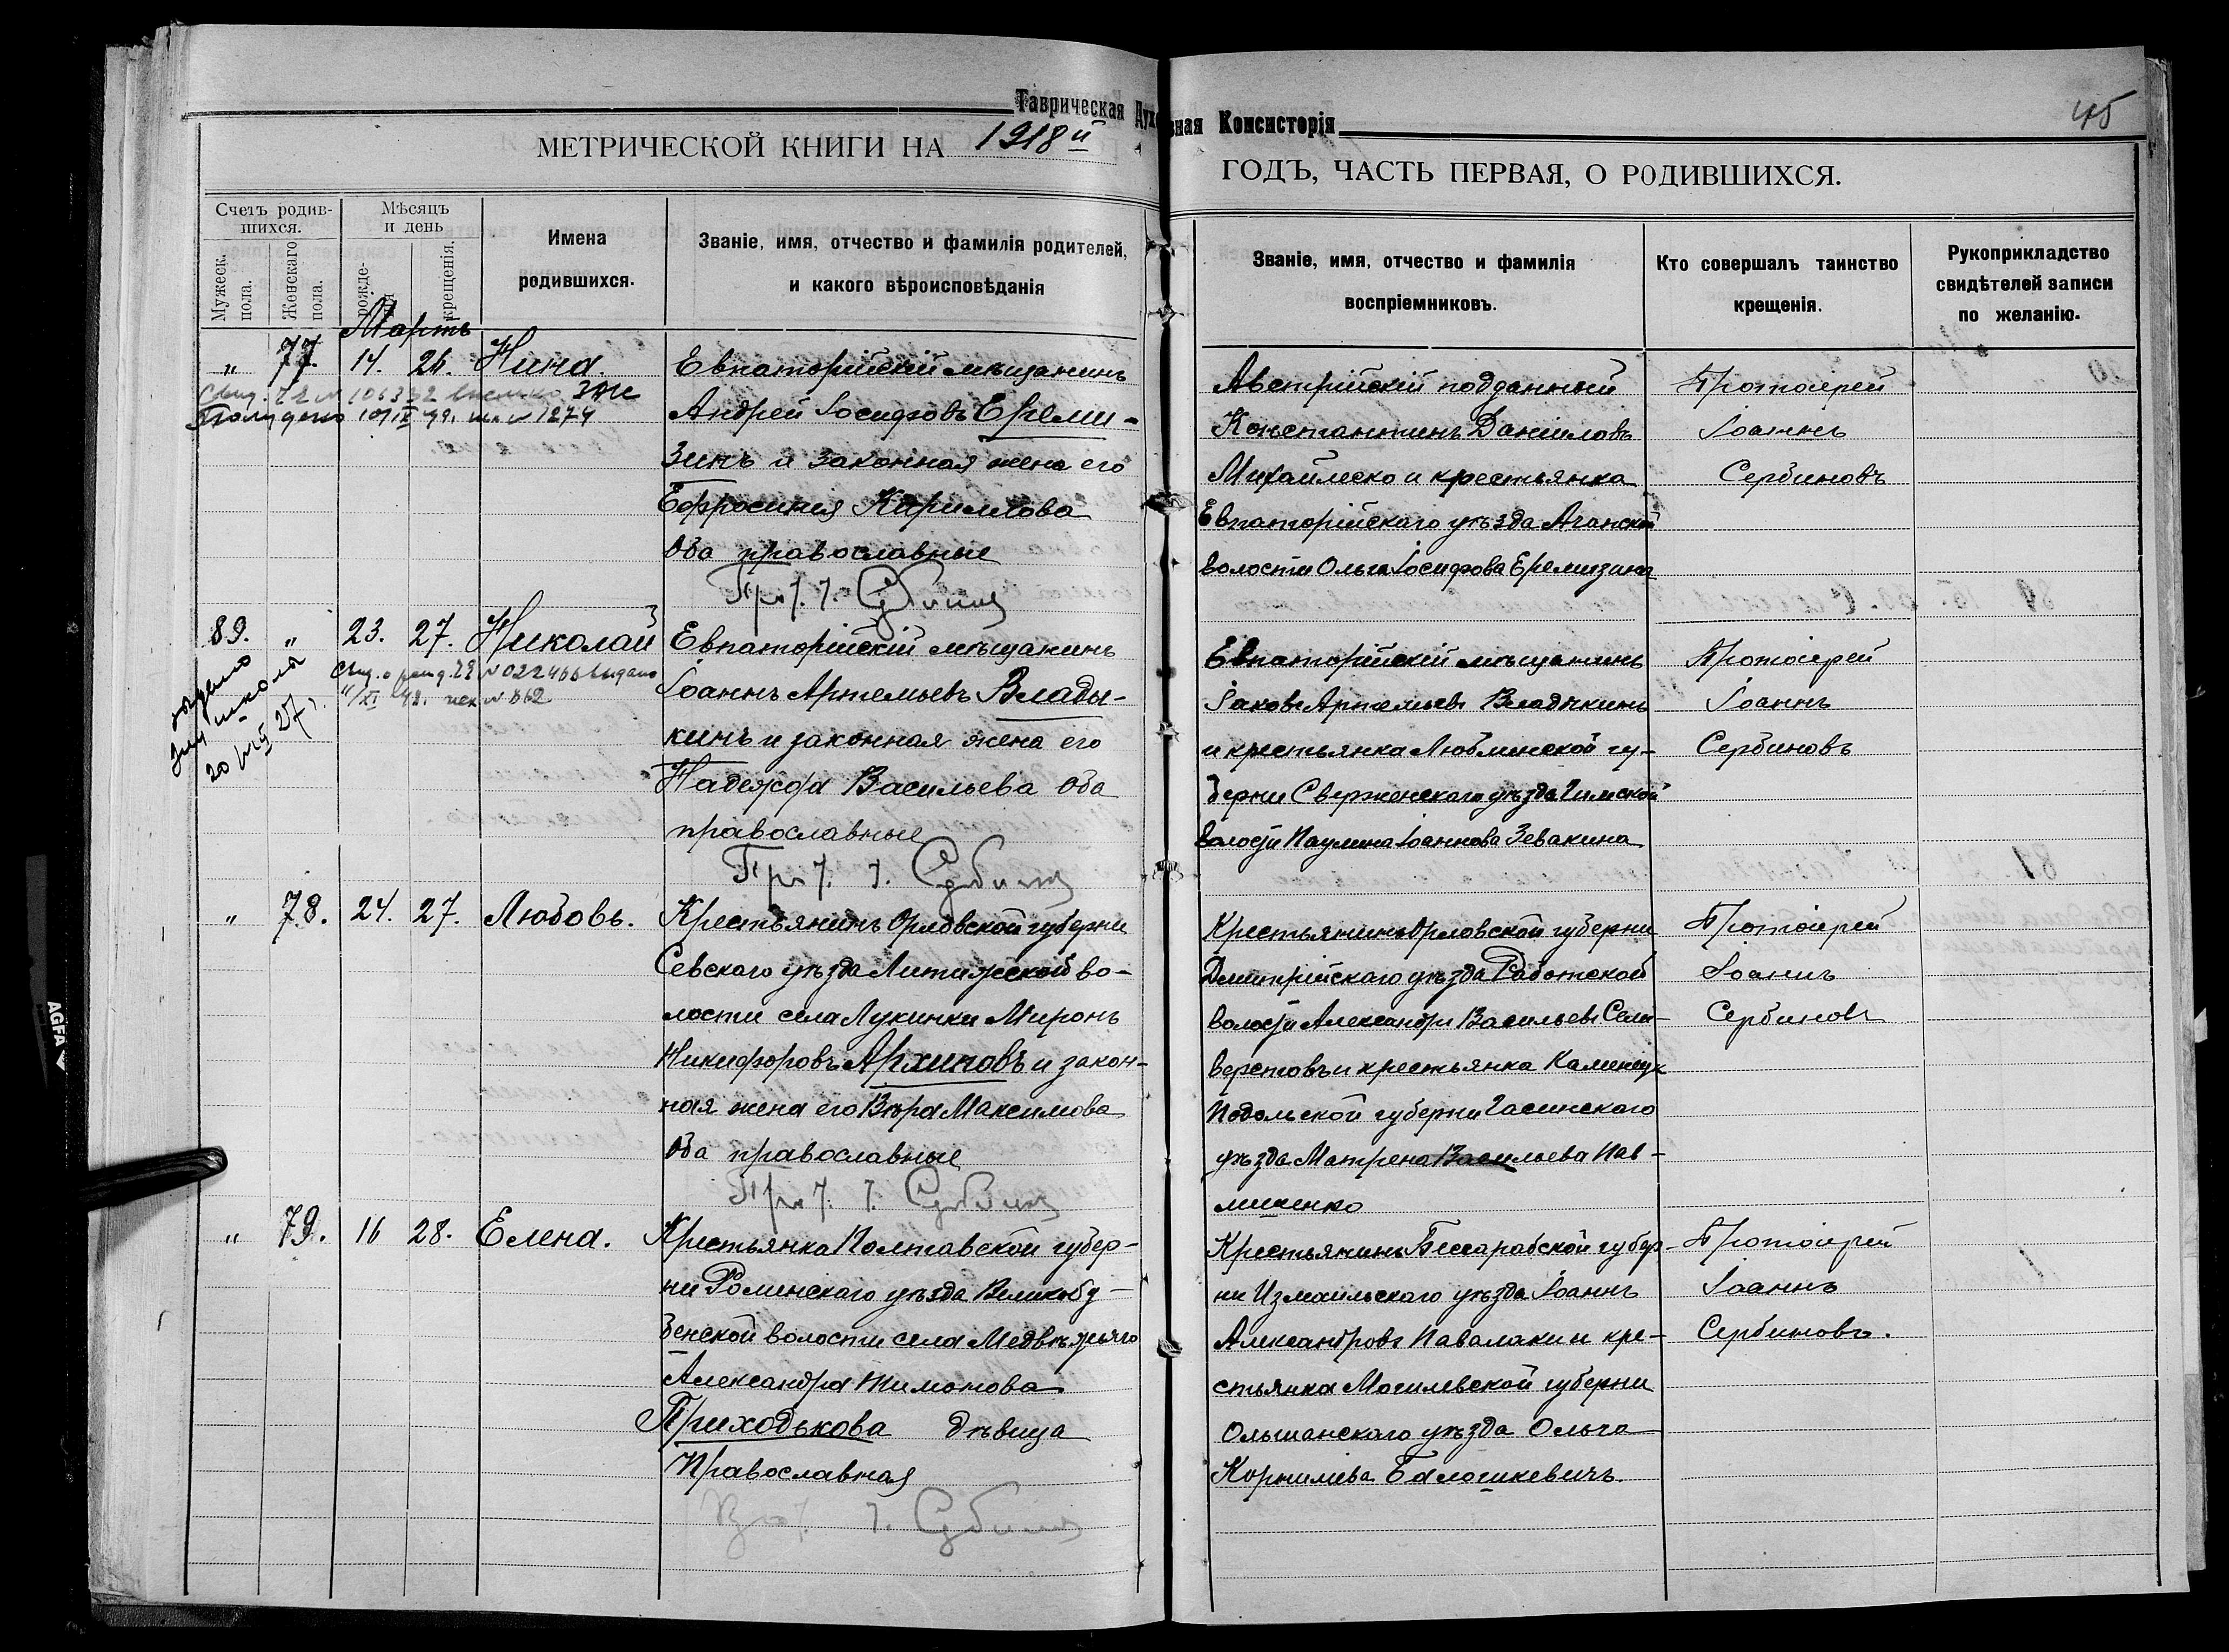 Таврическая Духовная Консисторія
45
МЕТРИЧЕСКОЙ КНИГИ НА 1918й
ГОДЪ, ЧАСТЬ ПЕРВАЯ, О РОДИВШИХСЯ.
Счетъ родив-
шихся.
Мужеск.
пола.
Женскаго
пола.
Мѣсяцъ
и день
рожде-
нія
крещенія.
Имена
родившихся.
Званіе, имя, отчество и фамилія родителей,
и какого вѣроисповѣданія
Званіе, имя, отчество и фамилія
воспріемниковъ.
Кто совершалъ таинство
крещенія.
Рукоприкладство
свидѣтелей записи
по желанію.
Мартъ
„ 77. 14. 24. Нина.
Евпаторійскій мѣщанинъ
Андрей Іосифовъ Ереми-
зинъ и законная жена его
Ефросинія Кириллова
Оба православные
Австрійскій подданный
Константинъ Даніиловъ
Михайлеско и крестьянка
Евпаторійскаго уѣзда
волости Ольга Іосифова Еремизина
Протоіерей
Іоаннъ
Сербиновъ
89. „ 23. 27. Николай
Свид. о рожд. № 022466 выдано
Евпаторійскій мѣщанинъ
Іоаннъ Артемьевъ Влады-
кинъ и законная жена его
Надежда Васильева Оба
православные
Евпаторійскій мѣщанинъ
Іаковъ Артемьевъ Владыкинъ
и крестьянка Люблинской гу-
берни уѣзда
Паулина Іоаннова Зевакина
Протоіерей
Іоаннъ
Сербиновъ
„ 78. 24. 27. Любовь.
Крестьянинъ Орловской губерни
Севскаго уѣзда Литижской во-
лости села Лукинки Миронъ
Никифоровъ Архиповъ и закон-
ная жена его Вѣра Максимова
Оба православные
Крестьянинъ Орловской губерни
Дмитрійскаго уѣзда Работской
Александръ Васильевъ Сели-
верстовъ и крестьянка
Подольской губерни
уѣзда Матрена Васильева Пав-
личенко
Протоіерей
Іоаннъ
Сербиновъ
„ 79. 16 28. Елена.
Крестьянка Полтавской губер-
ни Роменскаго уѣзда Великобу-
бенской волости села Медвѣжьяго
Александра Тимонова
Приходькова дѣвица
Православная
Крестьянинъ Бессарабской губер-
ни Измаильскаго уѣзда Іоаннъ
Александровъ Павалаки и кре-
стьянка Могилевской губерни
Ольшанскаго уѣзда Ольга
Корнилева Балошкевичъ.
Протоіерей
Іоаннъ
Сербиновъ.
AGFA